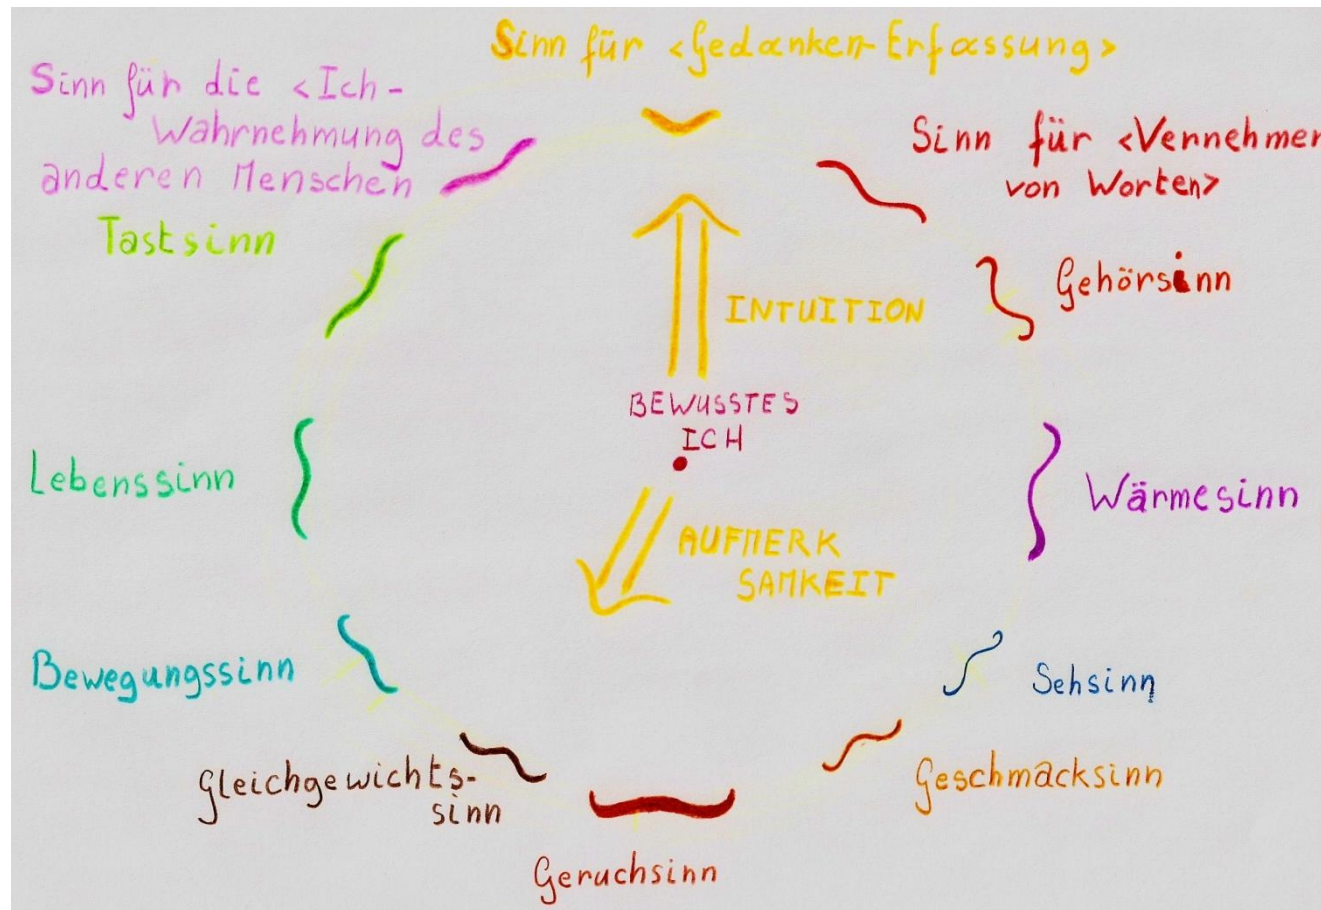 Sinn für <Gedanken-Erfassung>
Sinn für die <Ich-
Wahrnehmung des
anderen Menschen
Sinn für <Vernehmen
von Worten>
Tastsinn
Gehörsinn
INTUITION
BEWUSSTES
ICH
Lebenssinn
Wärmesinn
AUFMERK
SAMKEIT
Bewegungssinn
Sehsinn
Gleichgewichts-
sinn
Geschmacksinn
Geruchsinn